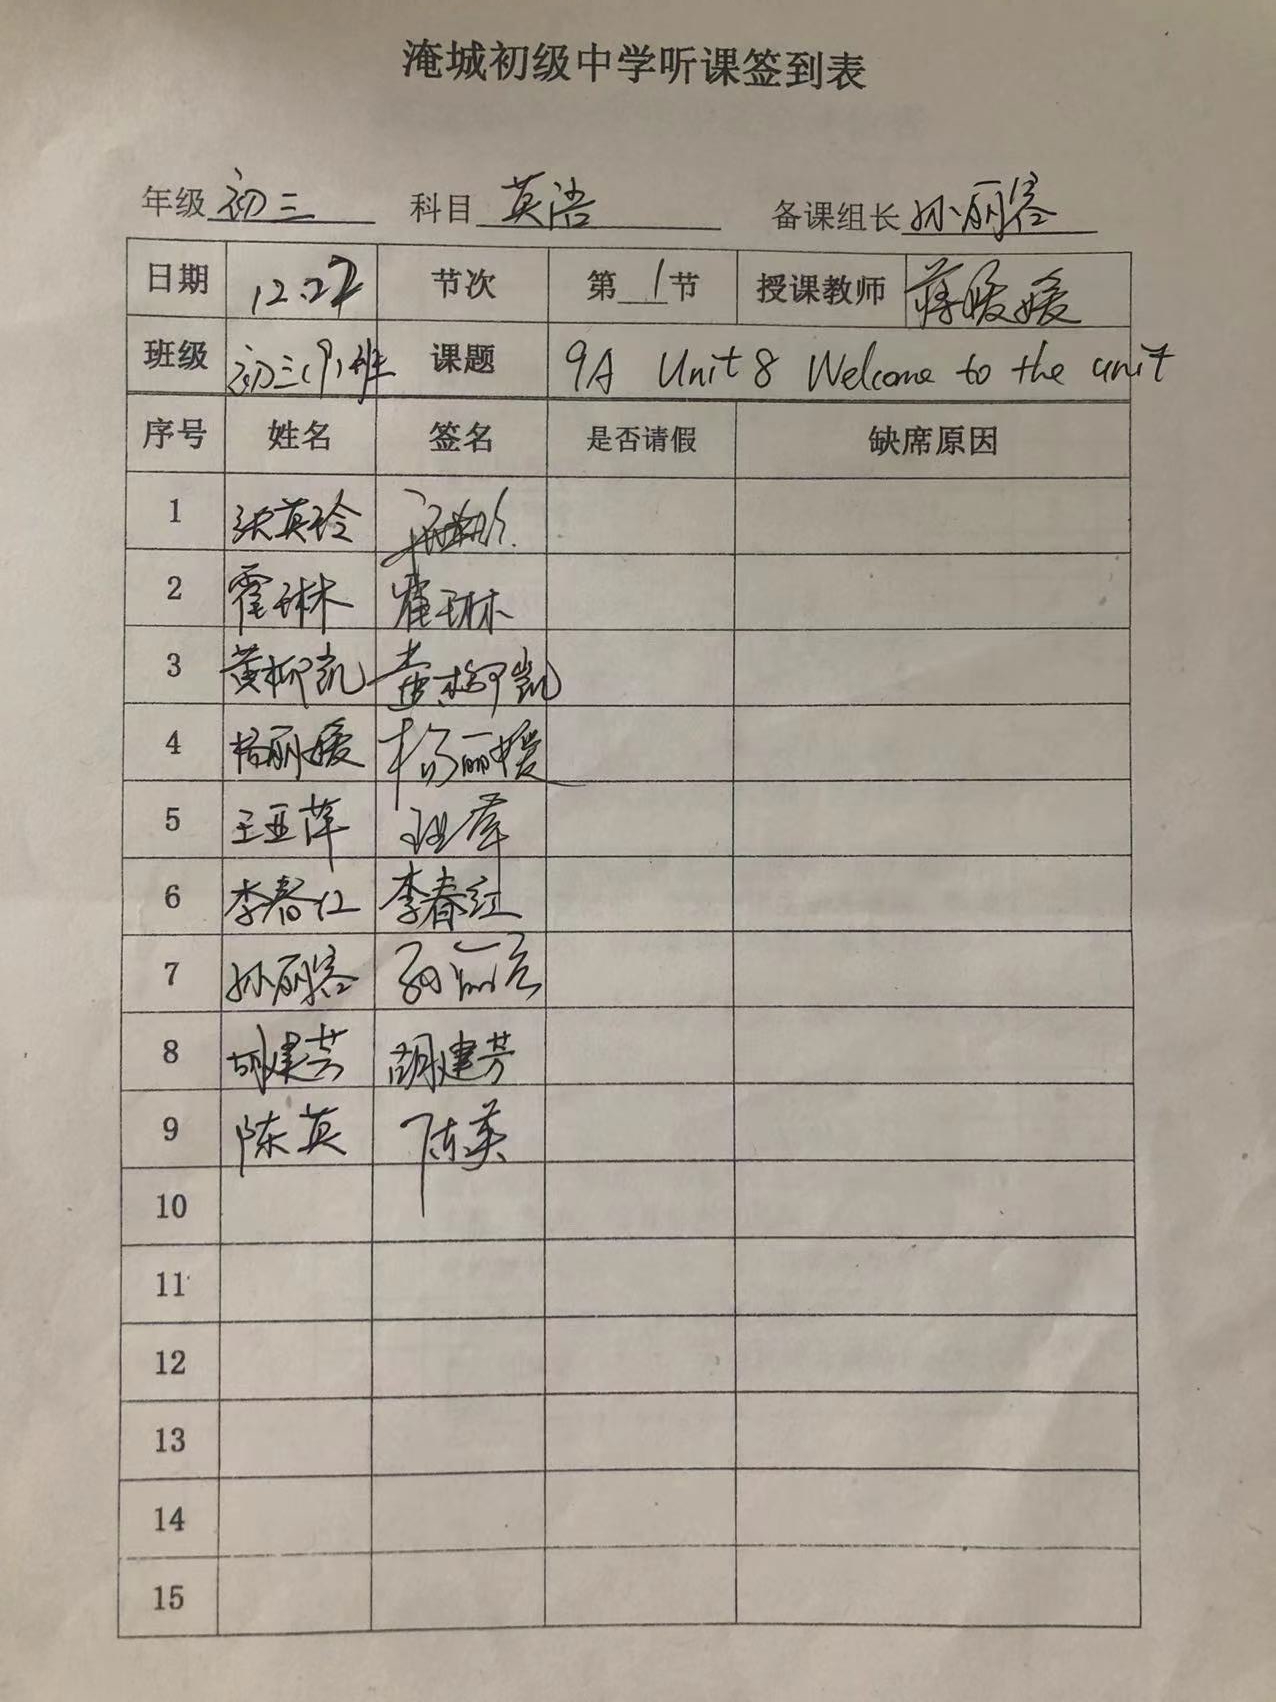 淹城初级中学听课签到表
年级 初三 科目 英语 备课组长 孙丽容
日期 12.27 节次 第 1 节 授课教师 蒋媛媛
班级 初三(9)班 课题 9A Unit 8 Welcome to the unit
序号 姓名 签名 是否请假 缺席原因
1 张英玲
2 霍琳 霍琳
3 黄柳凯 黄柳凯
4 杨丽媛 杨丽媛
5 王亚萍 王亚萍
6 李春红 李春红
7 孙丽容 孙丽容
8 胡建芳 胡建芳
9 陈英 陈英
10
11
12
13
14
15